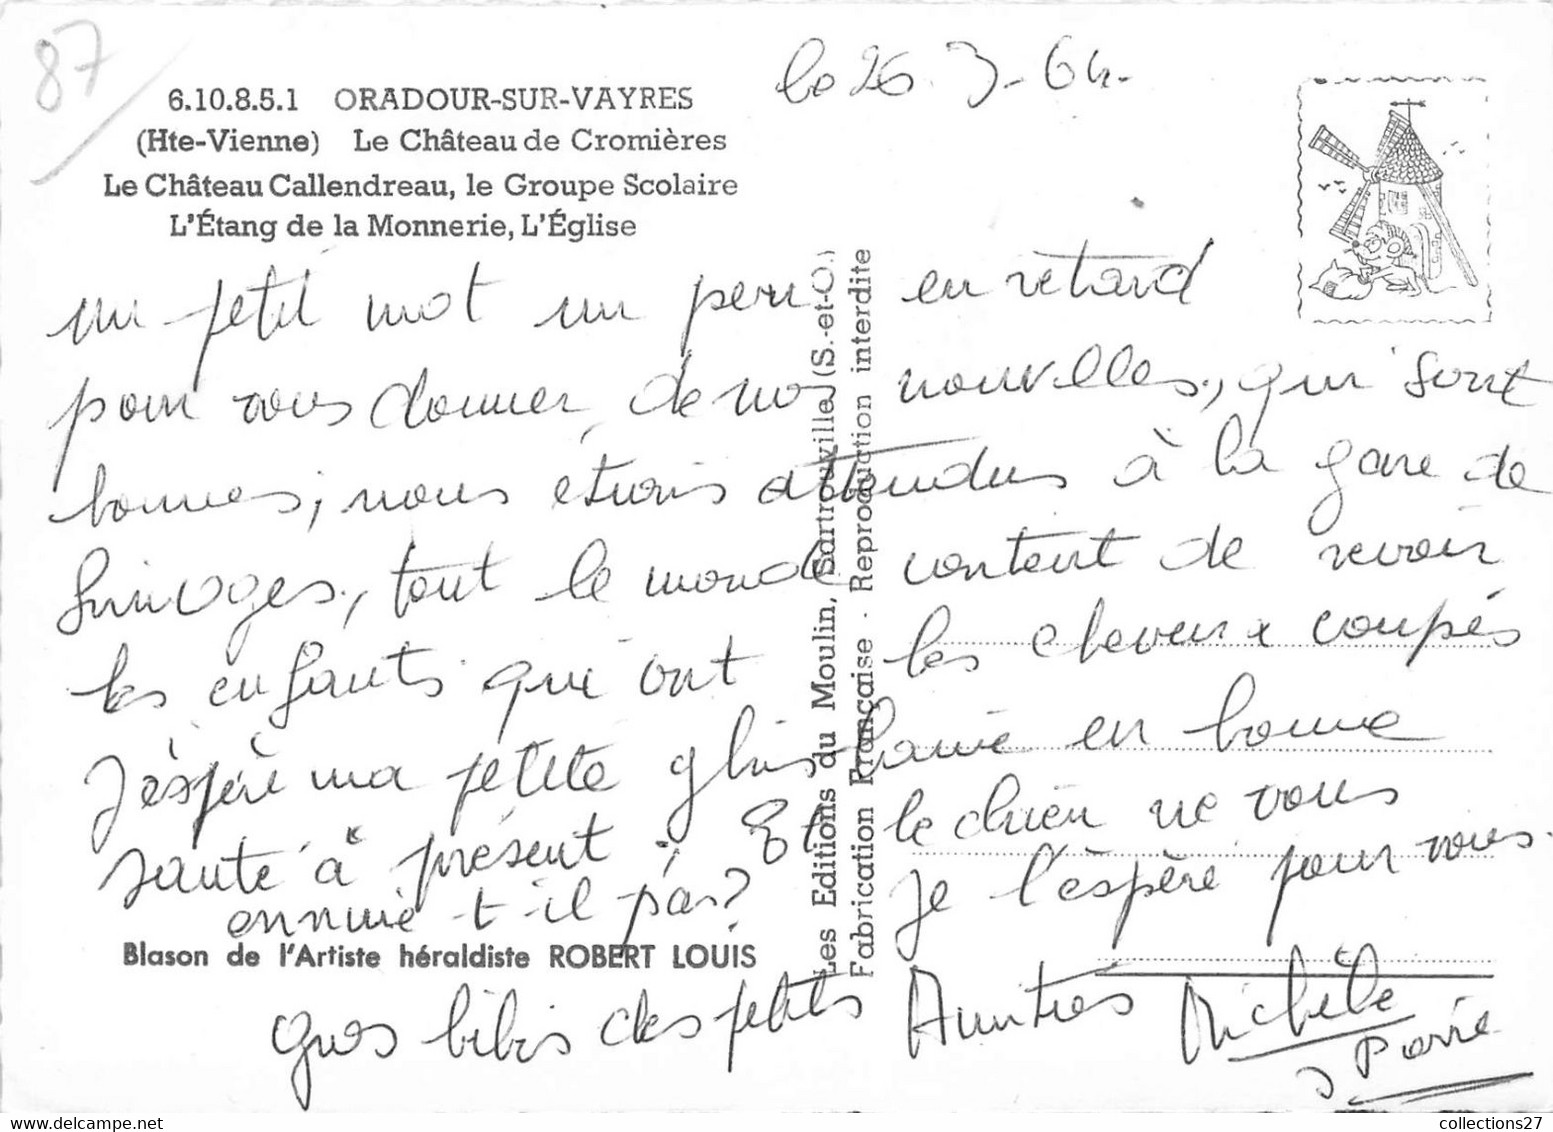 87
6.10.8.5.1 ORADOUR-SUR-VAYRES
(Hte-Vienne) Le Château de Cromières
Le Château Callendreau, le Groupe Scolaire
L'Étang de la Monnerie, L'Église
le 26.3-64.
un petit mot un peu en retard
pour vous donner de nos nouvelles, qui sont
bonnes, nous étions attendus à la gare de
Limoges, tout le monde content de revoir
les enfants qui ont les cheveux coupés
J'éspère ma petite en bonne
santé à présent; Et le chien ne vous
ennuie-t-il pas? Je l'éspère pour vous.
Blason de l'Artiste héraldiste ROBERT LOUIS
gros bibis des petits Michèle
Les Editions du Moulin, Sartrouville (S.-et-O.)
Fabrication Française - Reproduction interdite
collections27